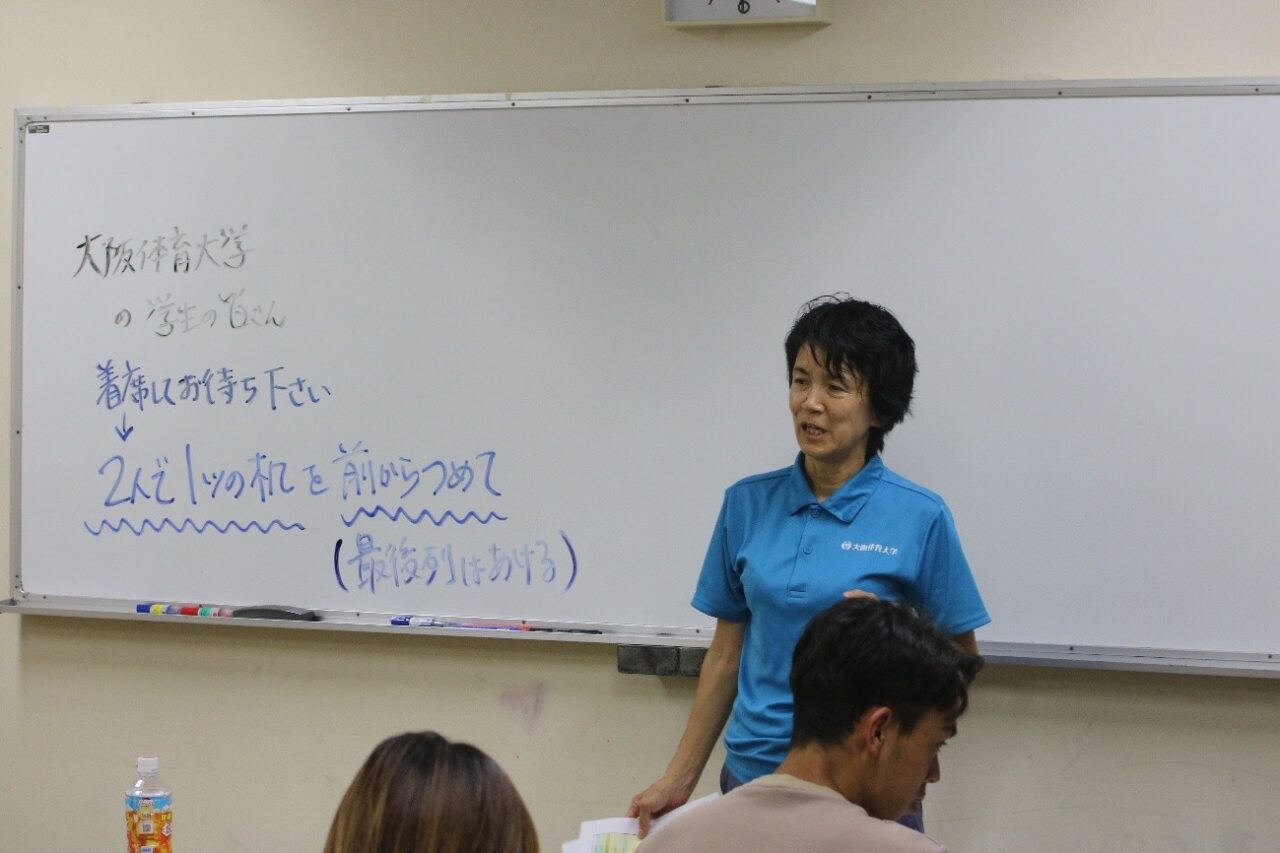 大阪体育大学
の学生の皆さん
着席してお待ち下さい
↓
2人で1ツの机を前からつめて
(最後列はあける)
大阪体育大学